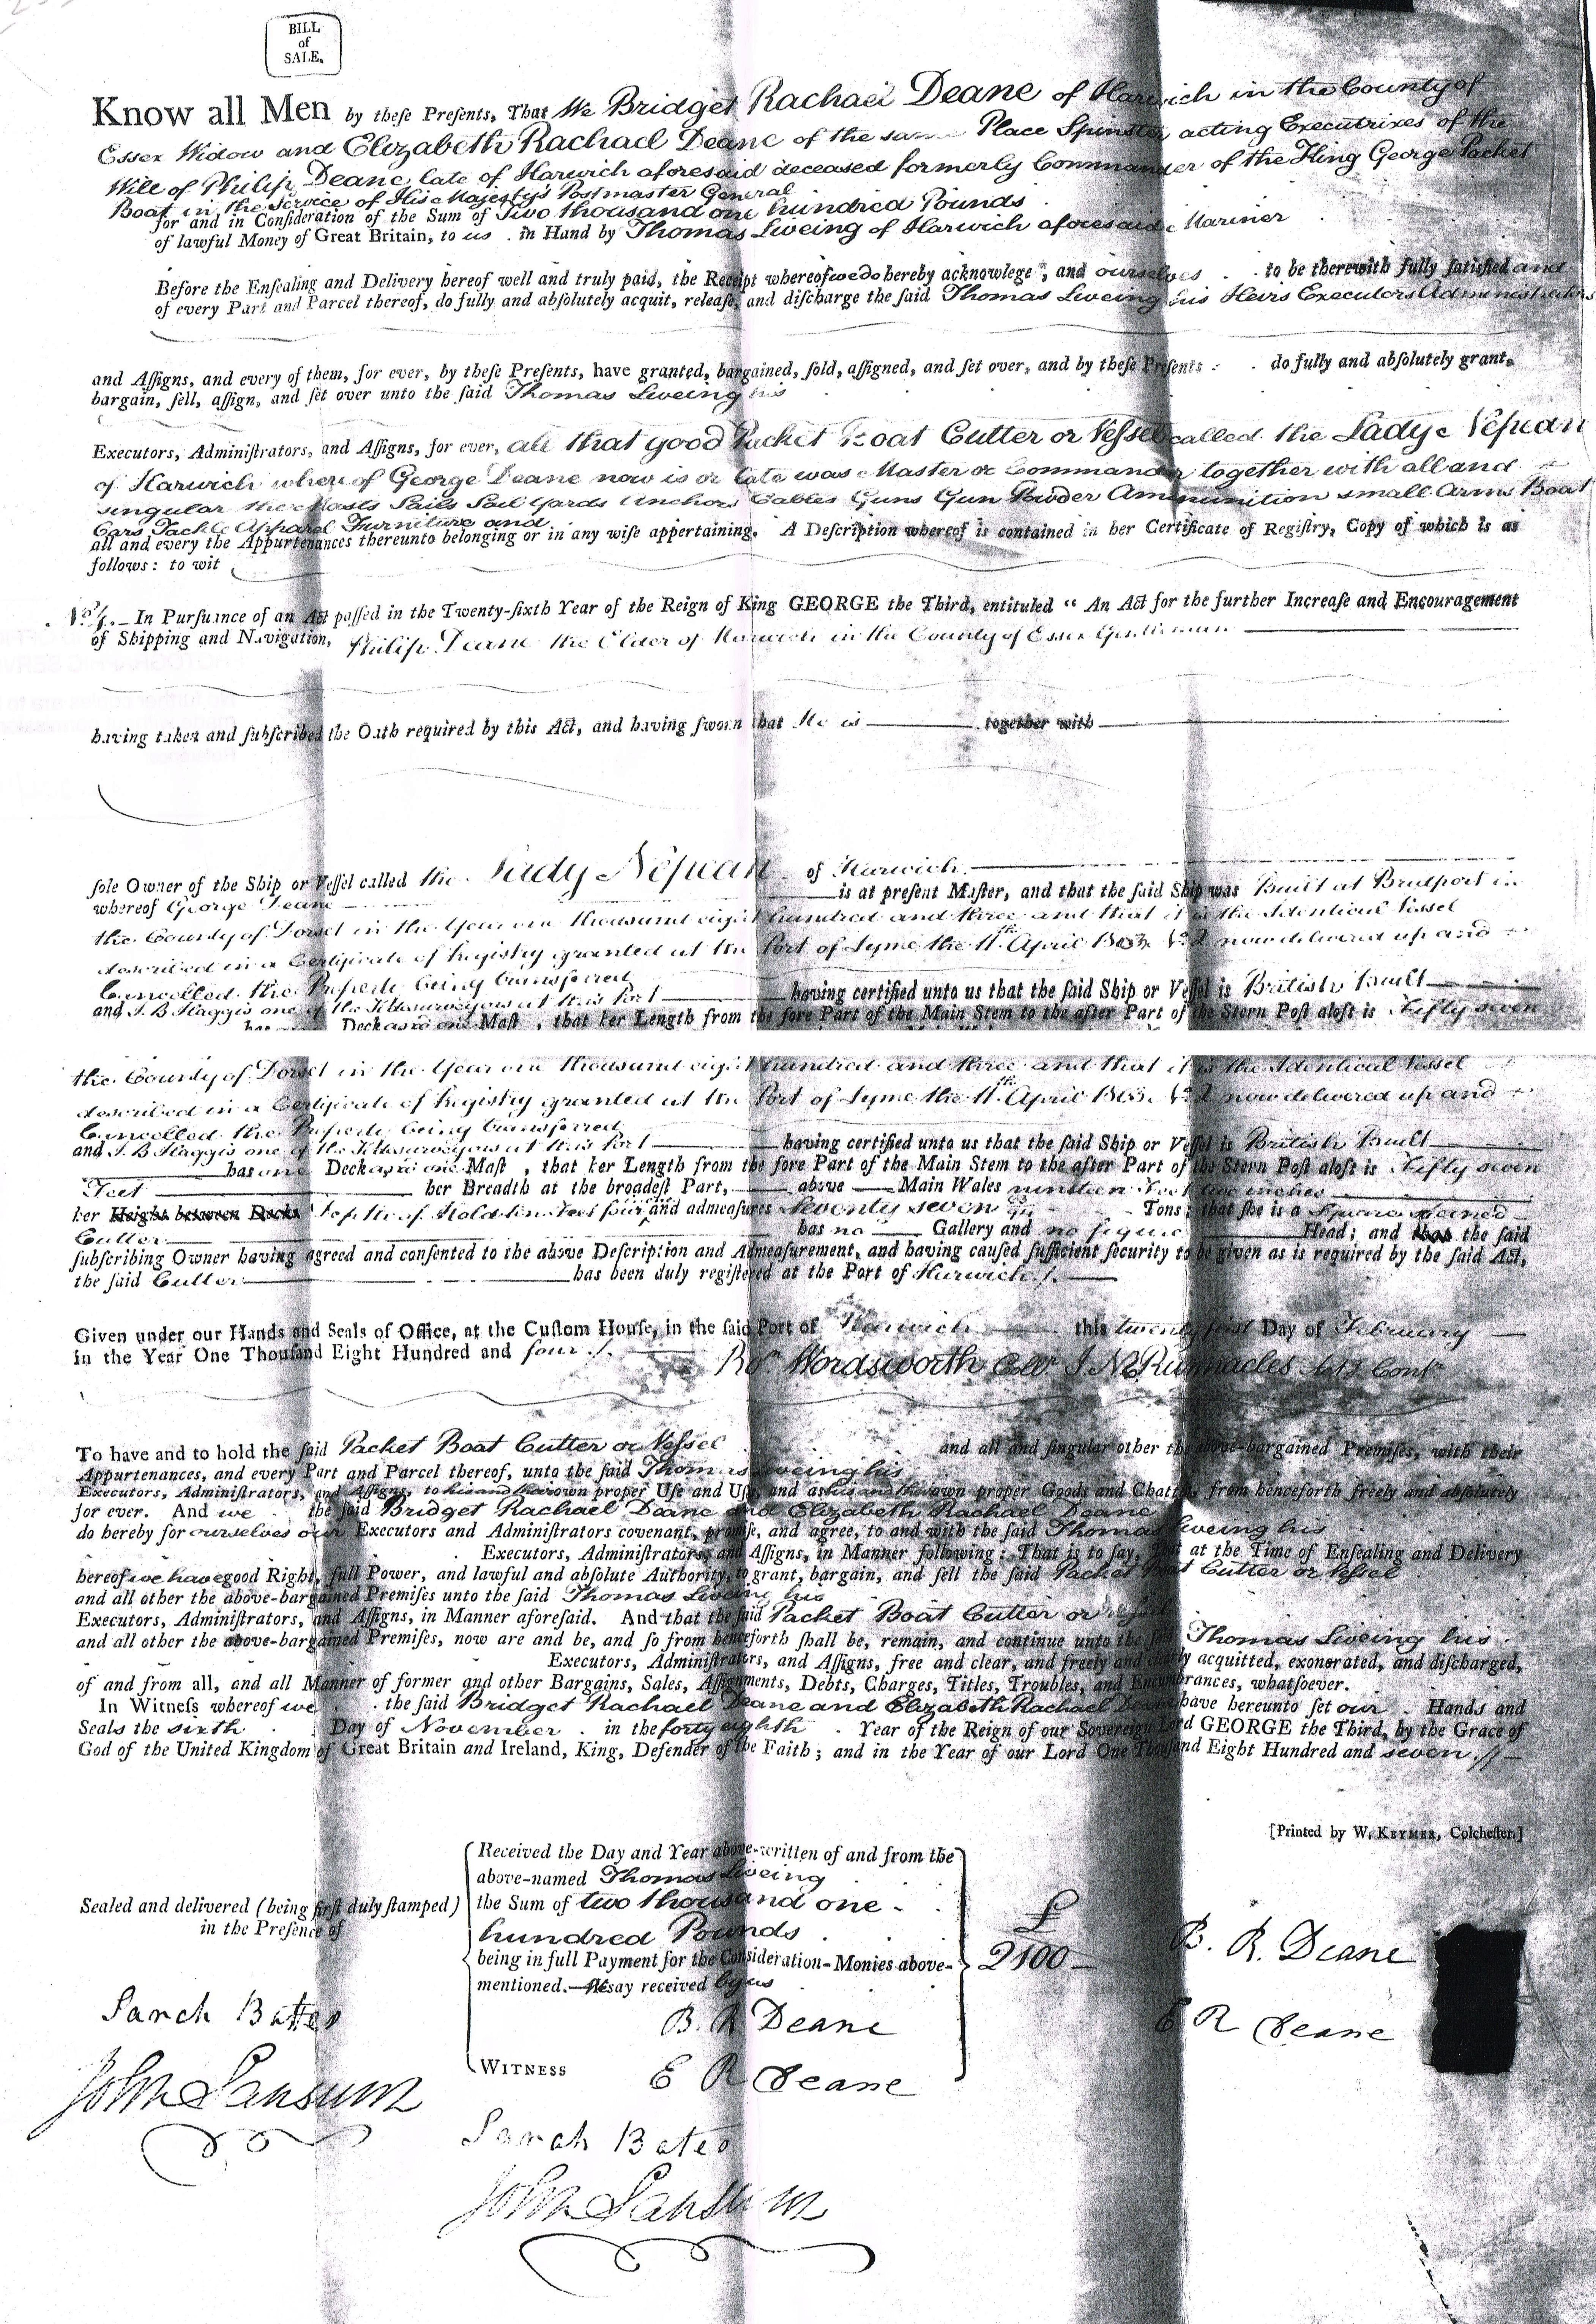 BILL
of
SALE.
Know all Men by theſe Preſents, That We Bridget Rachael Deane of Harwich in the County of
Essex Widow and Elizabeth Rachael Deane of the same Place Spinster acting Executrixes of the
Will of Philip Deane late of Harwich aforesaid deceased formerly Commander of the King George Packet
Boat in the Service of His Majesty's Postmaster General
for and in Conſideration of the Sum of Two thousand one hundred Pounds
of lawful Money of Great Britain, to us in Hand by Thomas Liveing of Harwich aforesaid Mariner
Before the Enſealing and Delivery hereof well and truly paid, the Receipt whereof we do hereby acknowlege, and ourselves to be therewith fully ſatisfied and
of every Part and Parcel thereof, do fully and abſolutely acquit, releaſe, and diſcharge the ſaid Thomas Liveing his Heirs Executors Administrators
and Aſſigns, and every of them, for ever, by theſe Preſents, have granted, bargained, ſold, aſſigned, and ſet over, and by theſe Preſents do fully and abſolutely grant,
bargain, ſell, aſſign, and ſet over unto the ſaid Thomas Liveing his
Executors, Adminiſtrators, and Aſſigns, for ever, all that good Packet Boat Cutter or Veſsel called the Lady Nepean
of Harwich whereof George Deane now is or late was Master or Commander together with all and
singular the Masts Sails Sail Yards Anchors Cables Guns Gun Powder Ammunition small Arms Boat
Oars Tackle Apparel Furniture and
all and every the Appurtenances thereunto belonging or in any wiſe appertaining. A Deſcription whereof is contained in her Certificate of Regiſtry, Copy of which is as
follows: to wit
In Purſuance of an Act paſſed in the Twenty-ſixth Year of the Reign of King GEORGE the Third, entituled “ An Act for the further Increaſe and Encouragement
of Shipping and Navigation, Philip Deane the Elder of Harwich in the County of Essex Gentleman
having taken and ſubſcribed the Oath required by this Act, and having ſworn that He is together with
ſole Owner of the Ship or Veſſel called the Lady Nepean of Harwich
whereof George Deane is at preſent Maſter, and that the ſaid Ship was Built at Bridport in
the County of Dorset in the Year one thousand eight hundred and three and that it is the Identical Vessel
described in a Certificate of Registry granted at the Port of Lyme the 11th April 1803 No. 2 now delivered up and
Cancelled the Property being transferred
and J. B. Staggis one of the Tidesurveyors at this Port having certified unto us that the ſaid Ship or Veſſel is British Built
has Deck and one Maſt, that her Length from the fore Part of the Main Stem to the after Part of the Stern Poſt aloft is Fifty seven
the County of Dorset in the Year one thousand eight hundred and three and that it is the Identical Vessel
described in a Certificate of Registry granted at the Port of Lyme the 11th April 1803 No. 2 now delivered up and
Cancelled the Property being transferred
and J. B. Staggis one of the Tidesurveyors at this Port having certified unto us that the ſaid Ship or Veſſel is British Built
has one Deck and one Maſt, that her Length from the fore Part of the Main Stem to the after Part of the Stern Poſt aloft is Fifty seven
Feet her Breadth at the broadeſt Part, above Main Wales nineteen Feet two inches
her Height between Decks Depth of Hold ten Feet four and admeaſures Seventy seven Tons; that ſhe is a Square sterned
Cutter has no Gallery and no figure Head; and that the ſaid
ſubſcribing Owner having agreed and conſented to the above Deſcription and Admeaſurement, and having cauſed ſufficient ſecurity to be given as is required by the ſaid Act,
the ſaid Cutter has been duly regiſtered at the Port of Harwich
Given under our Hands and Seals of Office, at the Cuſtom Houſe, in the ſaid Port of Harwich this twenty first Day of February
in the Year One Thouſand Eight Hundred and four
Ro. Wordsworth Collr. J. N. Runnacles Contr.
To have and to hold the ſaid Packet Boat Cutter or Veſsel and all and ſingular other the above-bargained Premiſes, with their
Appurtenances, and every Part and Parcel thereof, unto the ſaid Thomas Liveing his
Executors, Adminiſtrators, and Aſſigns, to his and their own proper Uſe and Uſes, and as his and their own proper Goods and Chattels, from henceforth freely and abſolutely
for ever. And we the ſaid Bridget Rachael Deane and Elizabeth Rachael Deane
do hereby for ourselves our Executors and Adminiſtrators covenant, promiſe, and agree, to and with the ſaid Thomas Liveing his
Executors, Adminiſtrators, and Aſſigns, in Manner following: That is to ſay, That at the Time of Enſealing and Delivery
hereof we have good Right, full Power, and lawful and abſolute Authority, to grant, bargain, and ſell the ſaid Packet Boat Cutter or Veſsel
and all other the above-bargained Premiſes unto the ſaid Thomas Liveing his
Executors, Adminiſtrators, and Aſſigns, in Manner aforeſaid. And that the ſaid Packet Boat Cutter or Veſsel
and all other the above-bargained Premiſes, now are and be, and ſo from henceforth ſhall be, remain, and continue unto the ſaid Thomas Liveing his
Executors, Adminiſtrators, and Aſſigns, free and clear, and freely and clearly acquitted, exonerated, and diſcharged,
of and from all, and all Manner of former and other Bargains, Sales, Aſſignments, Debts, Charges, Titles, Troubles, and Encumbrances, whatſoever.
In Witneſs whereof we the ſaid Bridget Rachael Deane and Elizabeth Rachael Deane have hereunto ſet our Hands and
Seals the sixth Day of November in the forty eighth Year of the Reign of our Sovereign Lord GEORGE the Third, by the Grace of
God of the United Kingdom of Great Britain and Ireland, King, Defender of the Faith; and in the Year of our Lord One Thouſand Eight Hundred and seven
[Printed by W. KEYMER, Colcheſter.]
Sealed and delivered (being firſt duly ſtamped)
in the Preſence of
Sarah Bates
John Sansum
Received the Day and Year above-written of and from the
above-named Thomas Liveing
the Sum of two thousand one
hundred Pounds
being in full Payment for the Conſideration-Monies above-
mentioned. say received by us
B. R Deane
WITNESS E R Deane
Sarah Bates
John Sansum
£
2100
B. R. Deane
E R Deane